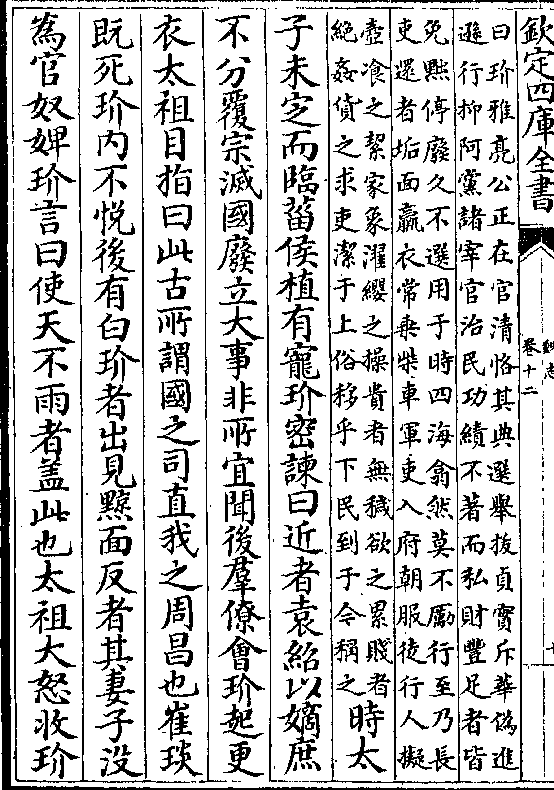 欽定四庫全書
魏志
卷十二
曰玠雅亮公正在官清恪其典選舉拔貞實斥華偽進
遜行抑阿黨諸宰官治民功績不著而私財豐足者皆
免黜停廢久不選用于時四海翕然莫不勵行至乃長
吏還者垢面羸衣常乗柴車軍吏入府朝服徒行人擬
壺飡之絜家象濯纓之操貴者無穢欲之累賤者
絶姦貨之求吏潔于上俗移乎下民到于今稱之
時太
子未定而臨菑侯植有寵玠密諫曰近者袁紹以嫡庶
不分覆宗滅國廢立大事非所宜聞後羣僚會玠起更
衣太祖目指曰此古所謂國之司直我之周昌也崔琰
既死玠内不悦後有白玠者出見黥面反者其妻子没
為官奴婢玠言曰使天不雨者盖此也太祖大怒收玠